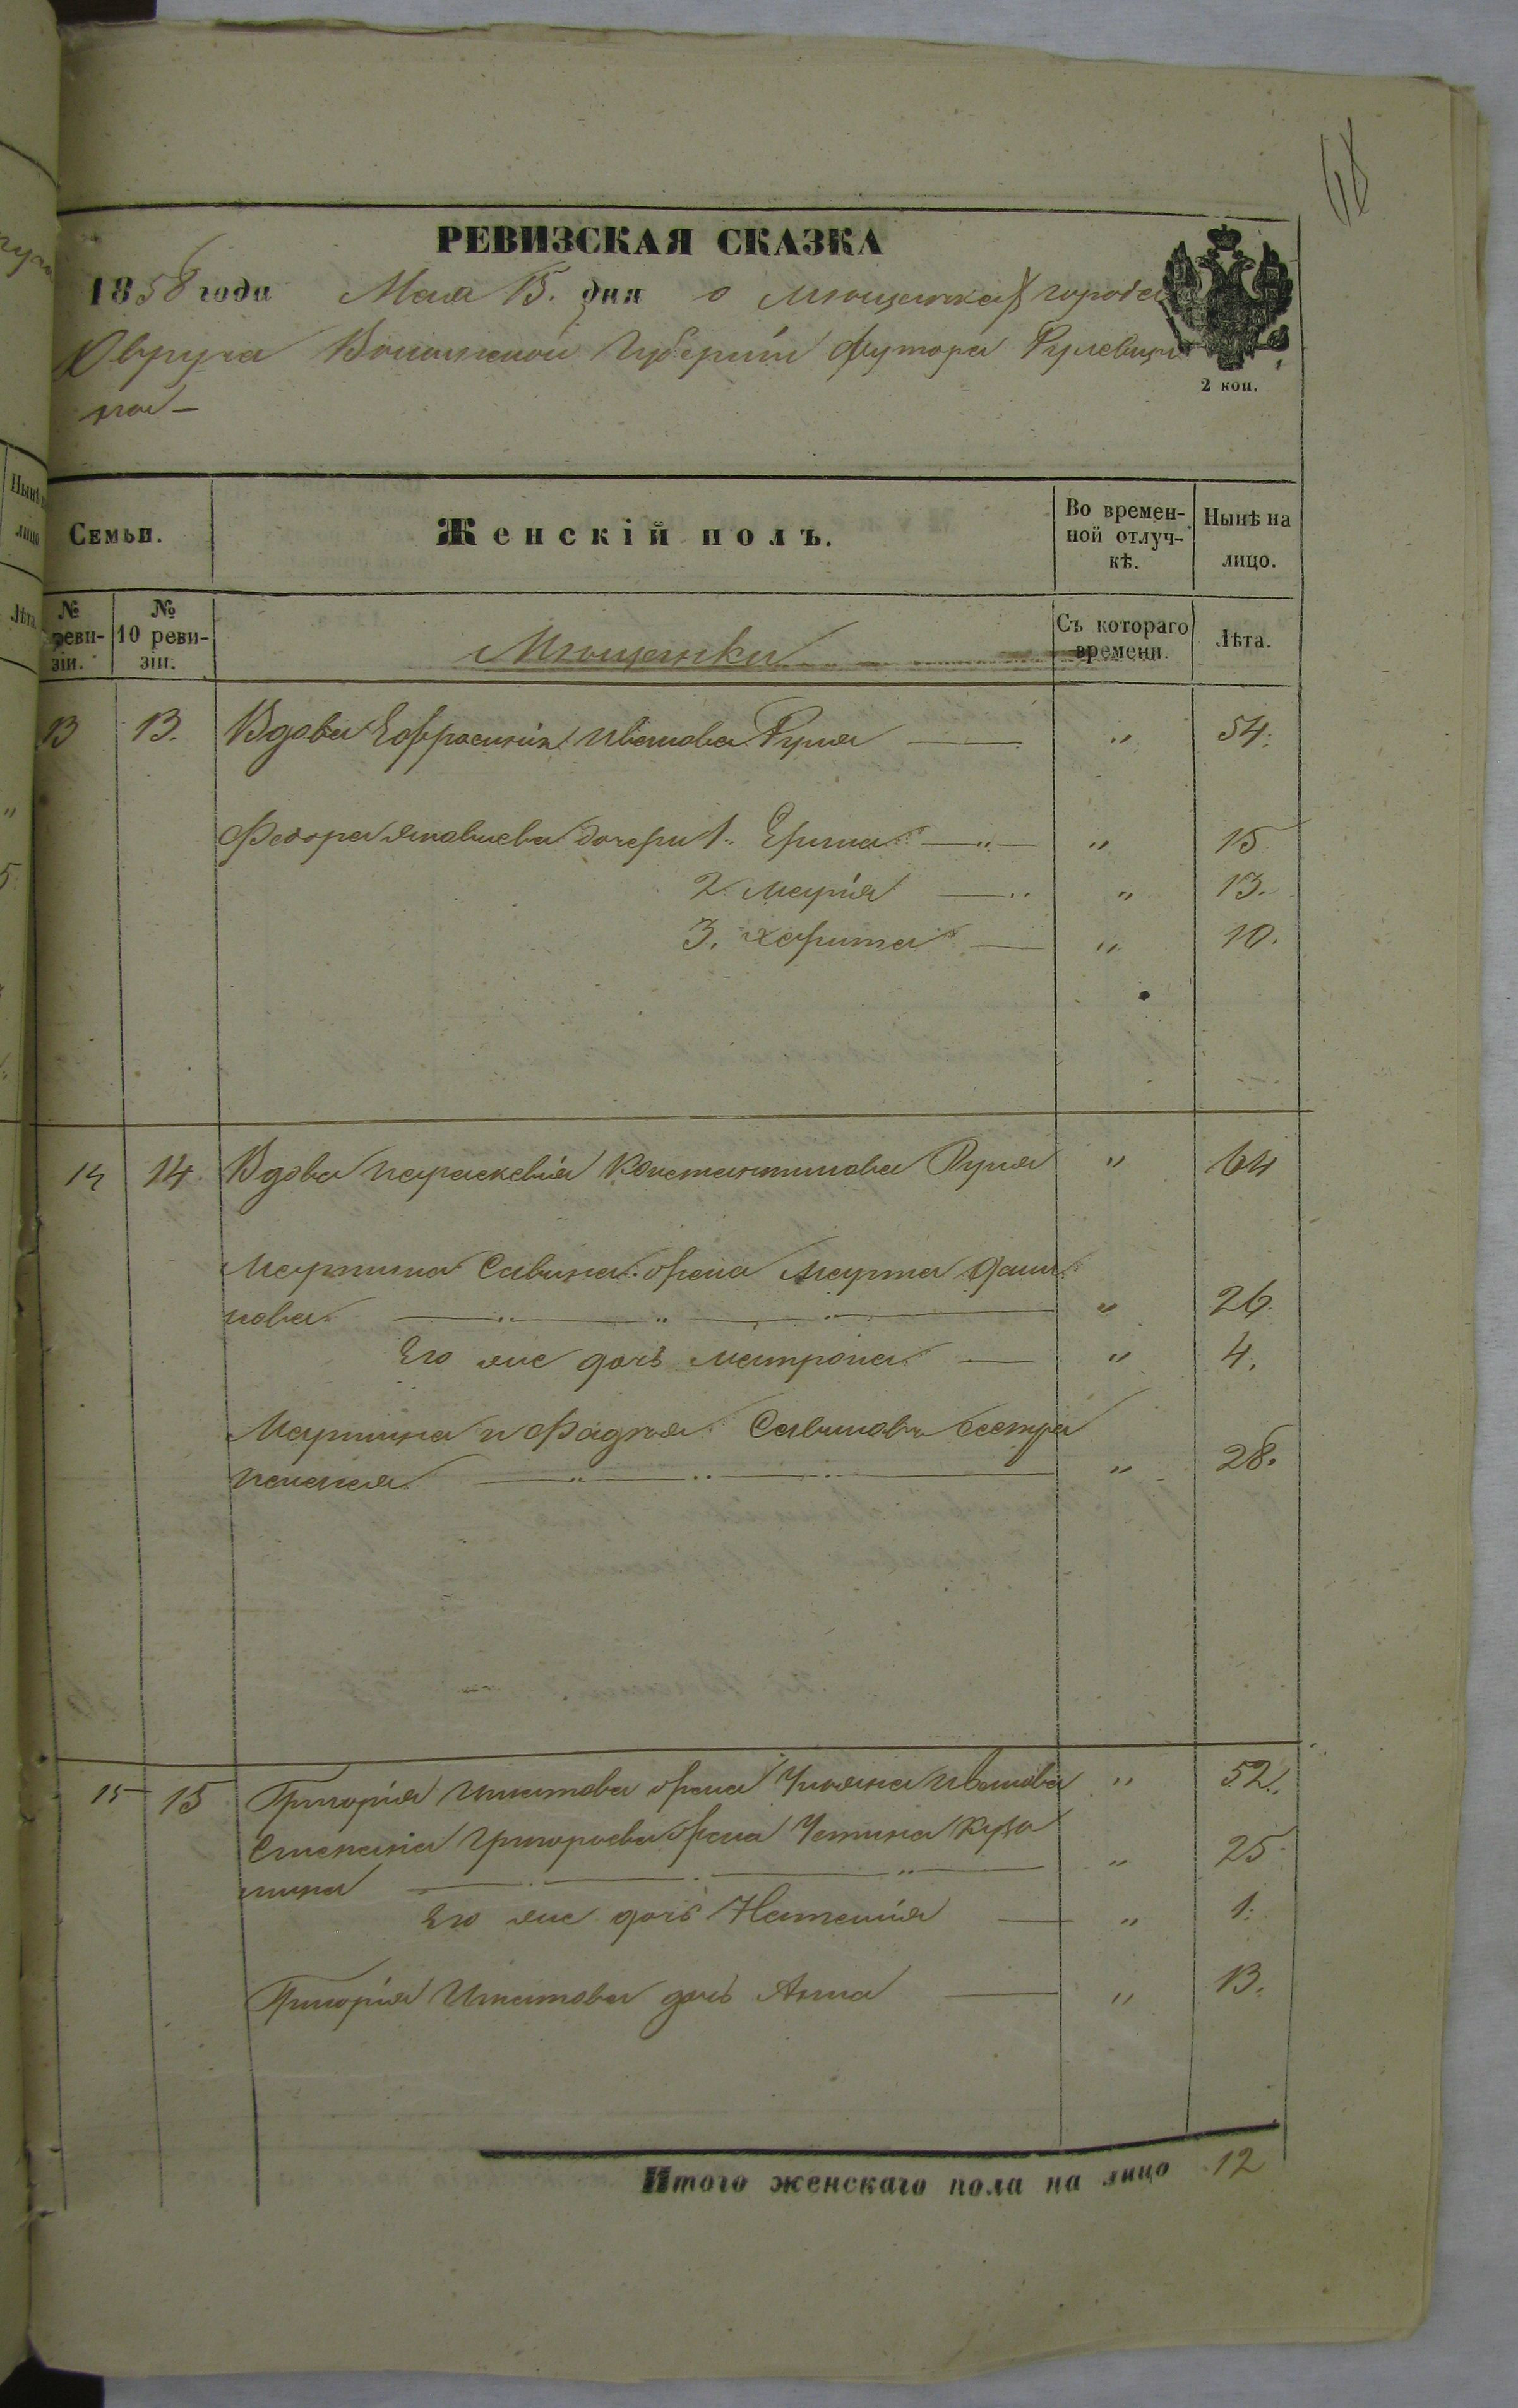 68
РЕВИЗСКАЯ СКАЗКА
1858 года Мая 15. дня о мѣщанкахъ города
Овруча Волынской Губерніи футора
2 коп.
Семьи.
Женскій полъ.
Во времен-
ной отлуч-
кѣ.
Нынѣ на
лицо.
№
реви-
зіи.
№
10 реви-
зіи.
Мѣщанки
Съ котораго
времени.
Лѣта.
13 13. Вдова Ефросинія Иванова Руля — " 54.
Федора Яковлева дочери 1. — " 15
2. Марія — " 13.
3. Харитина — " 10.
14 14. Вдова Параскевія Константинова Руля " 64
Мартина Савина жена Марта Дани
лова — " 26.
Его же дочь Матрона — " 4.
Мартина и Фадѣя Савиновъ сестра
Пелагея — " 28.
15 15 Григорія Игнатова жена Ульяна Иванова " 52.
Степана Григорьева жена Устина Кузь
мина — " 25
Его же дочь Наталія — " 1.
Григорія Игнатова дочь Анна — " 13.
Итого женскаго пола на лицо 12